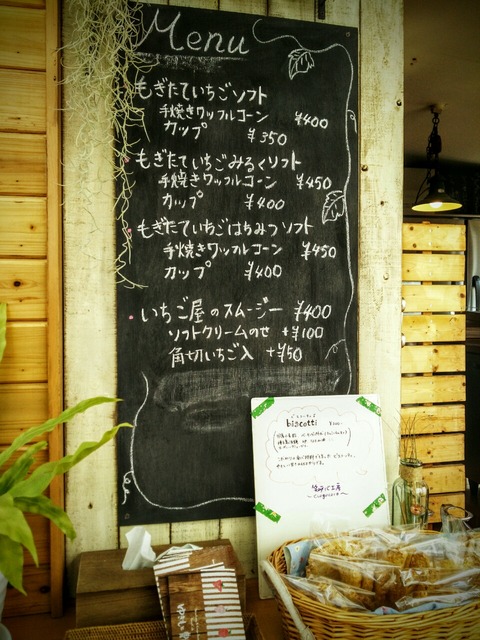 Menu
もぎたていちごソフト
手焼きワッフルコーン ¥400
カップ ¥350
もぎたていちごみるくソフト
手焼きワッフルコーン ¥450
カップ ¥400
もぎたていちごはちみつソフト
手焼きワッフルコーン ¥450
カップ ¥400
いちご屋のスムージー ¥400
ソフトクリームのせ +¥100
角切いちご入 +¥50
biscotti